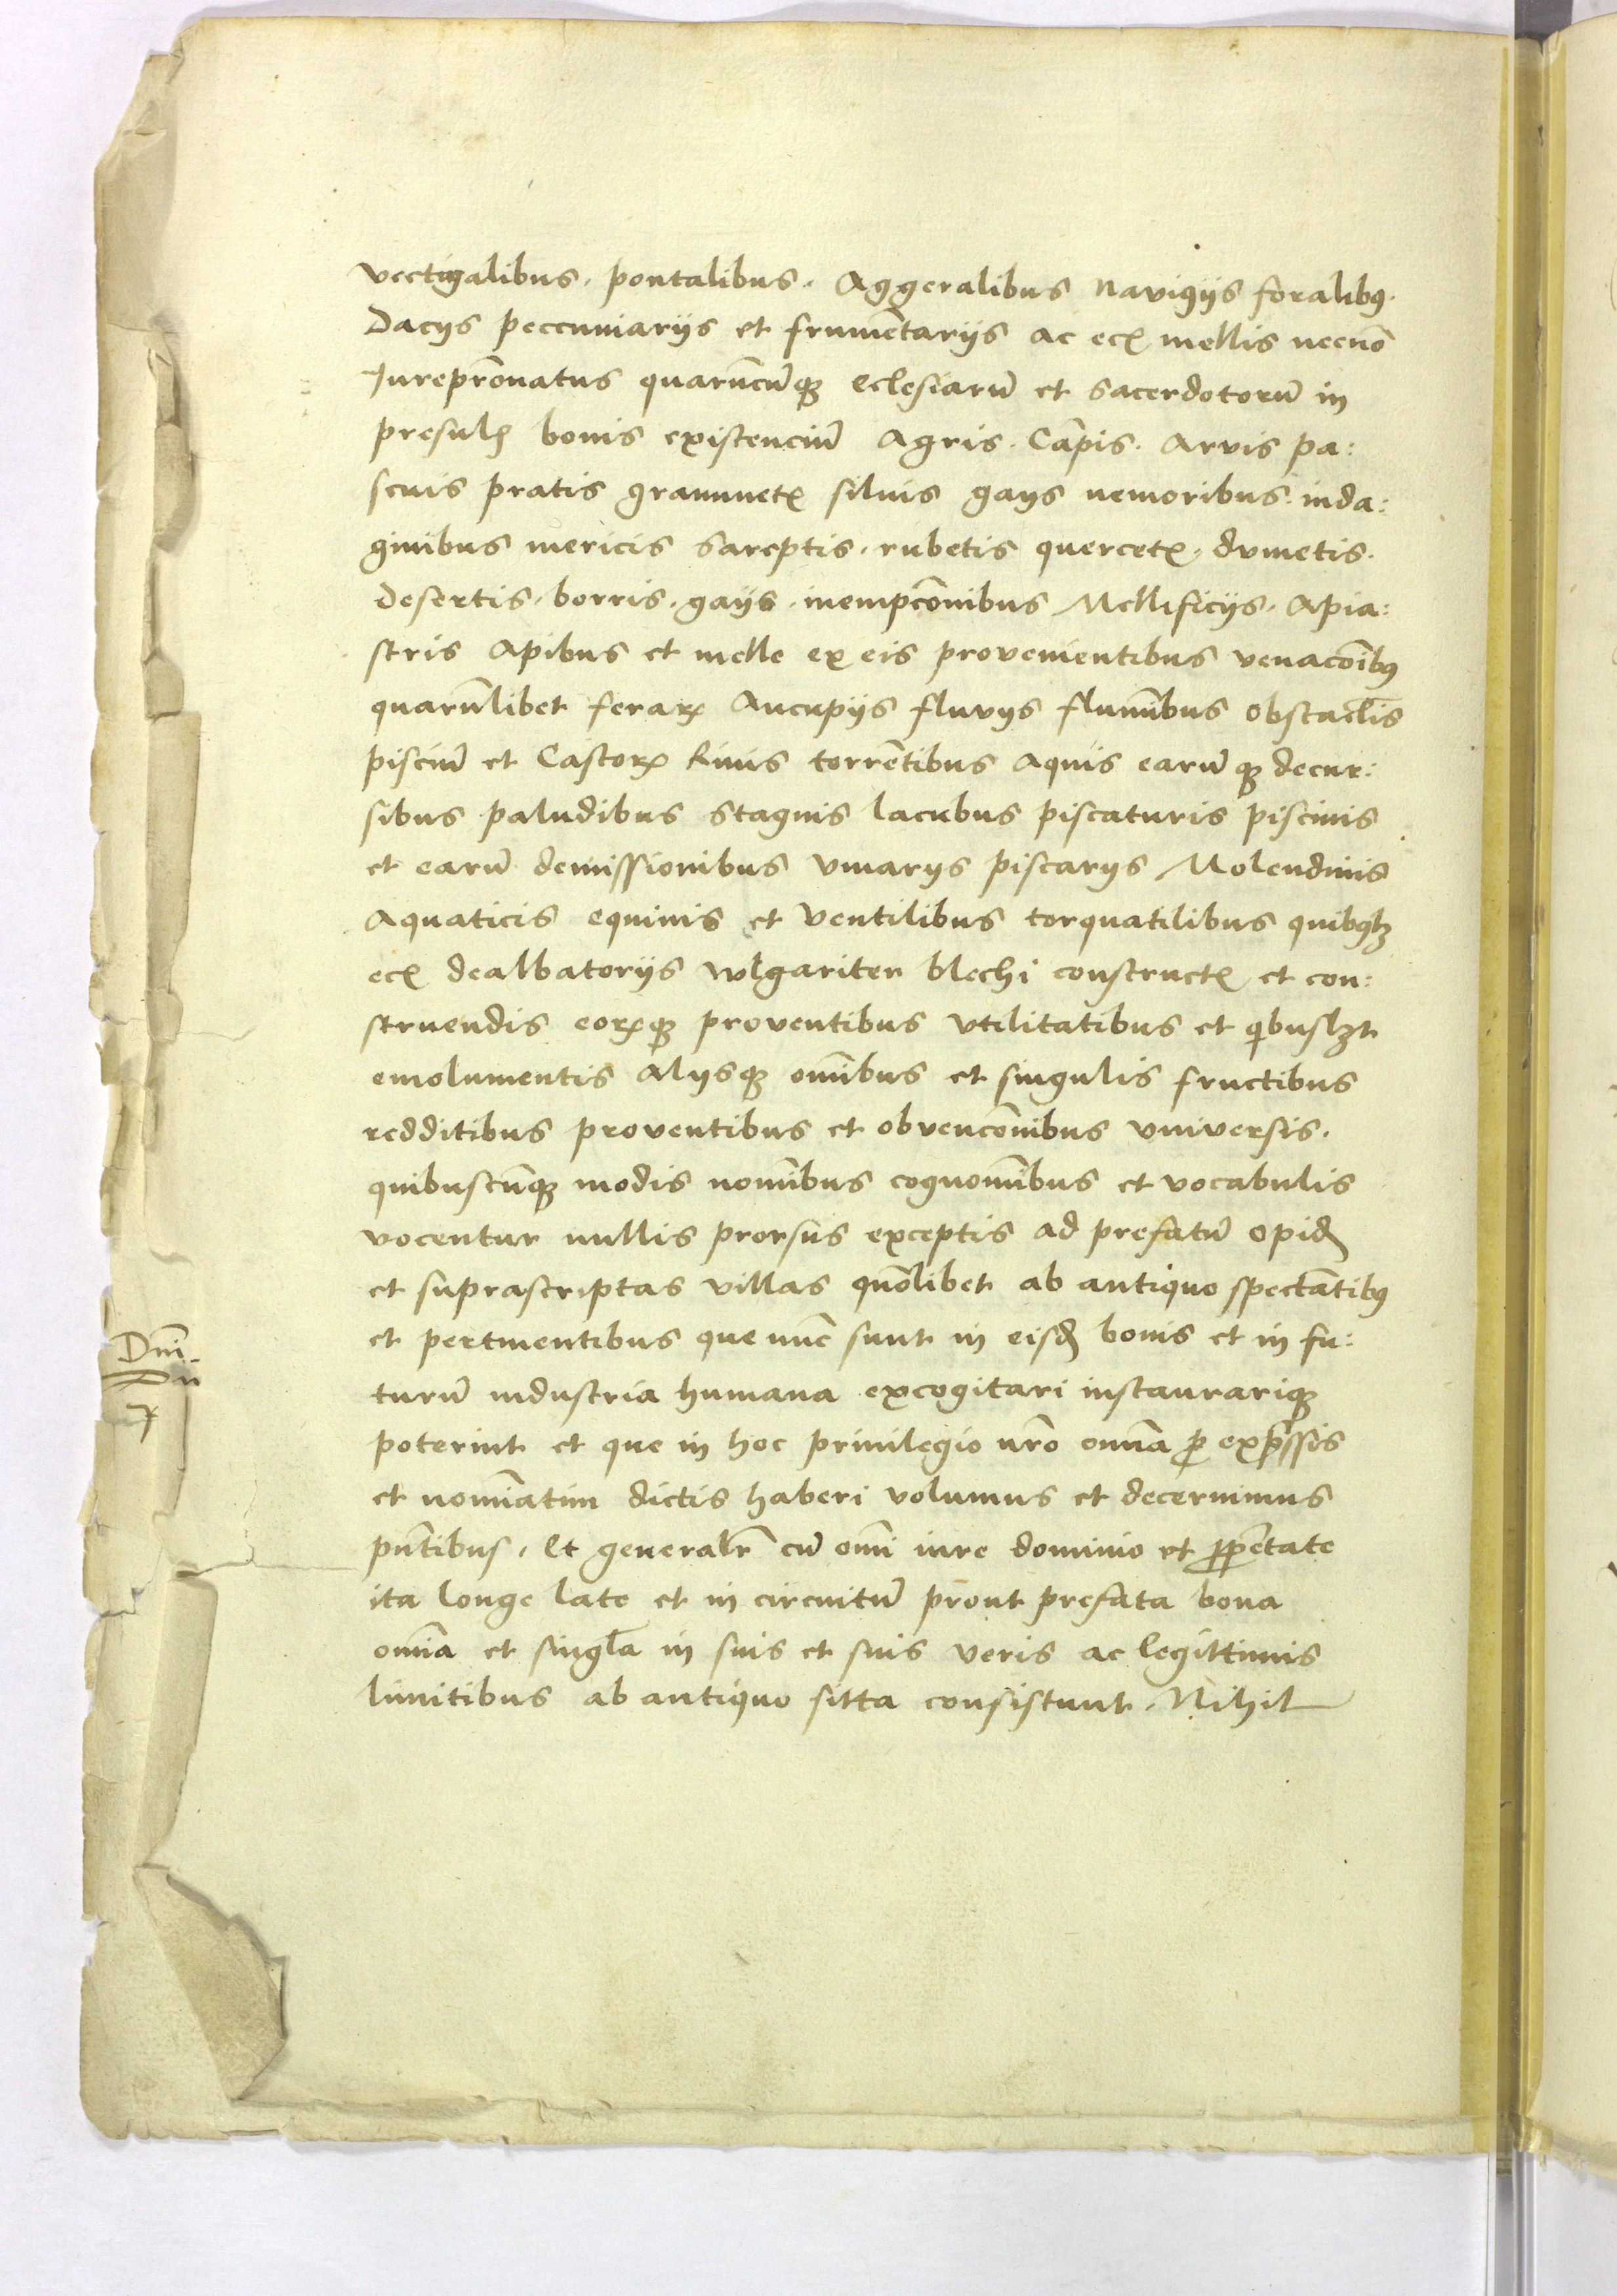 vectigalibus. pontalibus. Aggeralibus Navigijs foralibꝰ.
Dacijs peccuniarijs et frumētarijs ac ecꝭ mellis necnō
Iureprōnatus quarūcūqꝫ eclesiarū et sacerdotorū in
presulꝭ bonis existenciū Agris. Cāpis. Arvis pa:
scuis pratis graminetꝭ siluis gays nemoribus. inda:
ginibus mericis sareptis. rubetis quercetꝭ. dumetis.
desertis. borris. gaijs. inempcōnibus Mellificijs. Apia:
stris Apibus et melle ex eis provenientibus venacōibꝰ
quarūlibet feraꝝ Aucupijs fluvijs flumībus obstaclīs
pisciū et Castoꝝ Rivis torrētibus Aquis earū qꝫ decur:
sibus paludibus stagnis lacubus piscaturis piscinis
et earū demissionibus vivarijs piscarijs Molendinis
Aquaticis equinis et ventilibus torquatilibus quibꝰlꝫ
ecꝭ dealbatorijs wlgariter blechi constructꝭ et con:
struendis eoꝝqꝫ proventibus vtilitatibus et qibuslꝫt
emolumentis Alijsqꝫ omībus et singulis fructibus
redditibus proventibus et obvencōnibus vniversis.
quibuscūqꝫ modis nomībus cognomībus et vocabulis
vocentur nullis prorsus exceptis ad prefatū opidꝭ
et suprascriptas villas quōlibet ab antiquo spectātibꝰ
et pertinentibus que nūc sunt in eisdꝭ bonis et in fu:
turū industria humana excogitari instaurariqꝫ
poterint et que in hoc privilegio nr̄o omīa ꝓ exp̄ssis
et nomīatim dictis haberi volumus et decernimus
pn̄tibus. Et generalr̄ cū omī iure dominio et ꝓpētate
ita longe late et in circuitū prout prefata bona
omīa et singl̄a in suis et suis veris ac legittimis
limitibus ab antiquo sitta consistunt. Nihil
Dnī